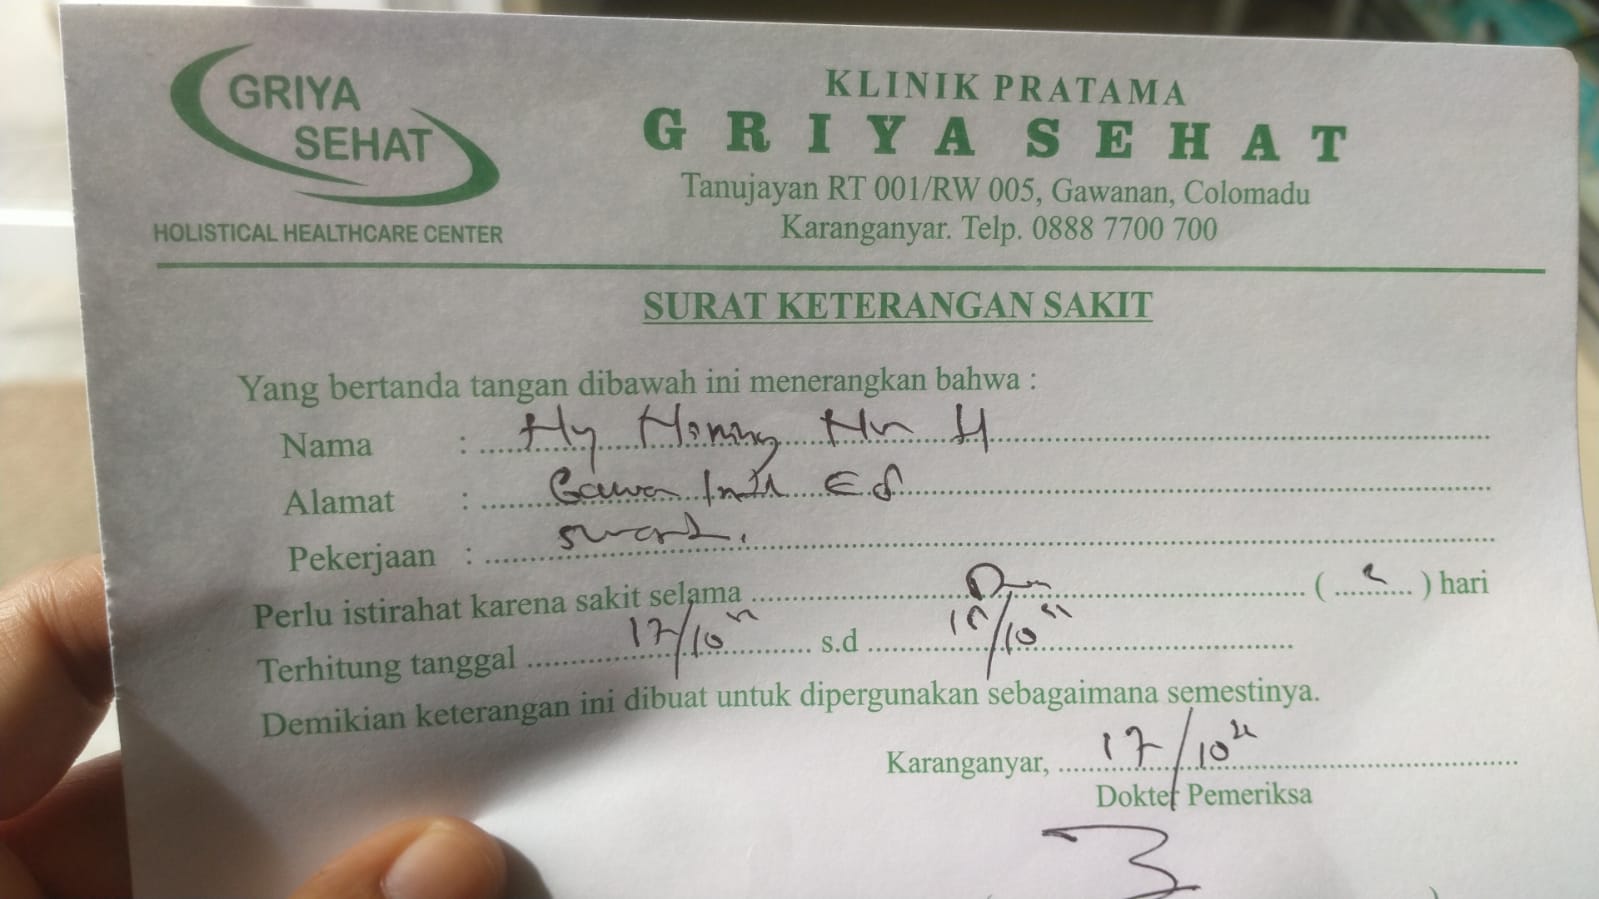 GRIYA
SEHAT
HOLISTICAL HEALTHCARE CENTER
KLINIK PRATAMA
GRIYA SEHAT
Tanujayan RT 001/RW 005, Gawanan, Colomadu
Karanganyar. Telp. 0888 7700 700
SURAT KETERANGAN SAKIT
Yang bertanda tangan dibawah ini menerangkan bahwa :
Nama :
Alamat :
Pekerjaan :
Perlu istirahat karena sakit selama ( ) hari
Terhitung tanggal 17/10 s.d
Demikian keterangan ini dibuat untuk dipergunakan sebagaimana semestinya.
Karanganyar, 17/10
Dokter Pemeriksa